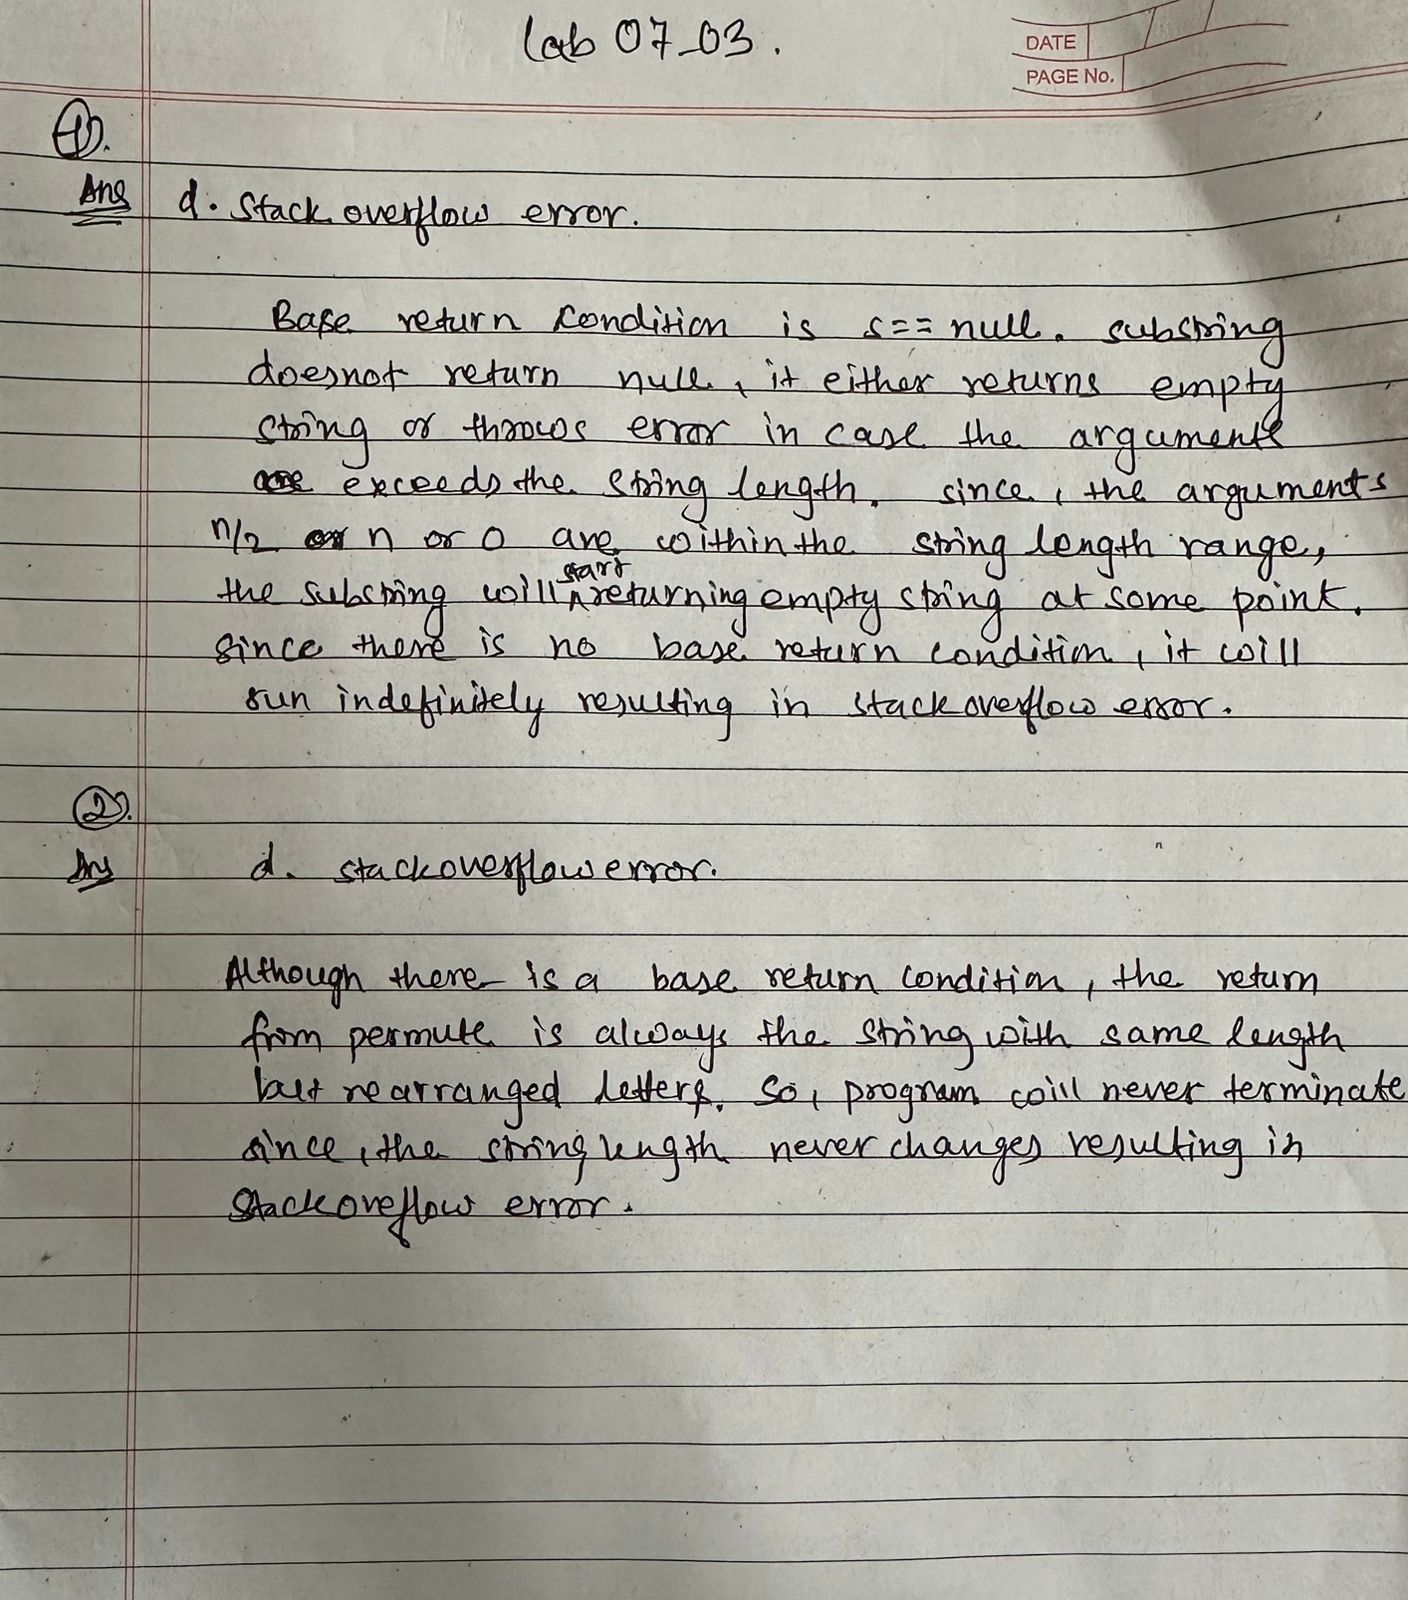 Lab 07_03.
DATE
PAGE No.
1).
Ans d. Stack overflow error.
Base return condition is s== null. substring
doesnot return null, it either returns empty
string or throws error in case the arguments
exceeds the string length. since, the arguments
n/2 or n or 0 are within the string length range,
start
the substring will ^ returning empty string at some point.
since there is no base return condition, it will
run indefinitely resulting in stack overflow error.
2).
Ans d. stackoverflow error.
Although there is a base return condition, the return
from permute is always the string with same length
but rearranged letters. So, program will never terminate
since, the string length never changes resulting in
Stackoveflow error.